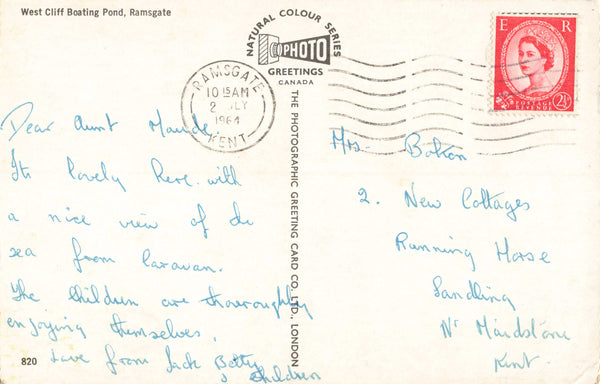 West Cliff Boating Pond, Ramsgate
NATURAL COLOUR SERIES
PHOTO
GREETINGS
CANADA
RAMSGATE
10 15 AM
2 JLY
1964
KENT
E R
POSTAGE REVENUE
2½D
THE PHOTOGRAPHIC GREETING CARD CO., LTD., LONDON
Dear Aunt Maude,
Its lovely here with
a nice view of the
sea from caravan.
The Children are thoroughly
enjoying themselves.
Love from Jack Betty
& Children
Mrs. Bolton
2. New Cottages
Running Horse
Sandling
Nr Maidstone
Kent.
820